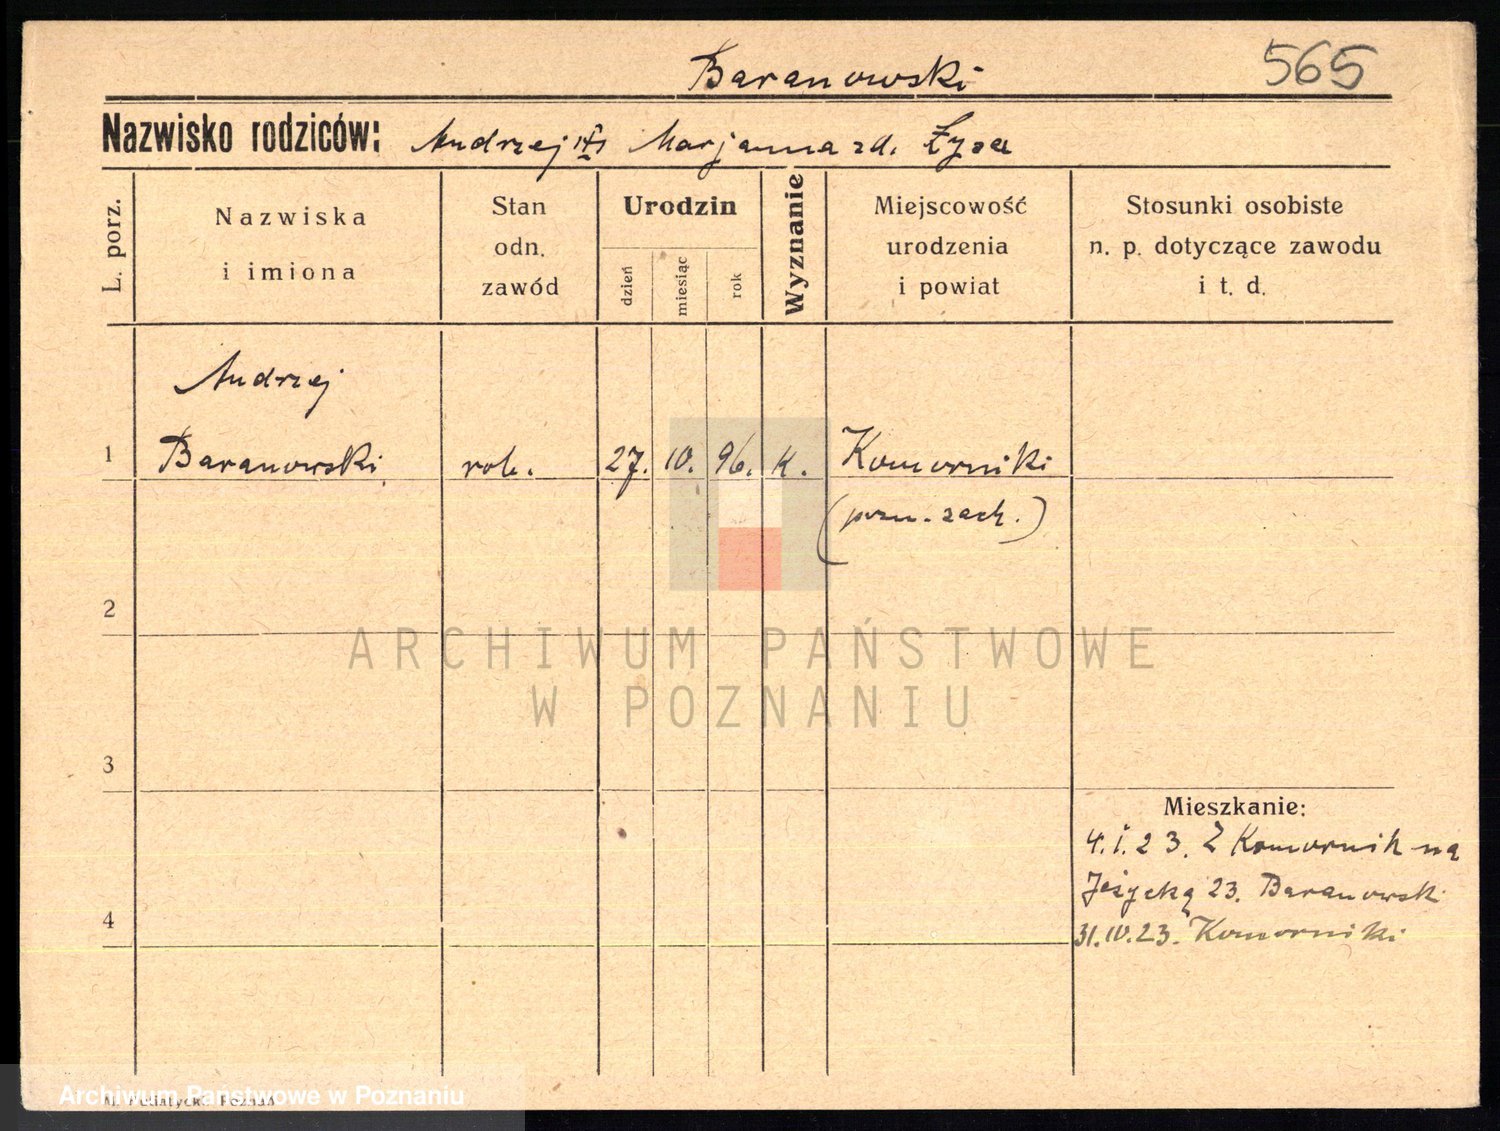 565
Baranowski
Nazwisko rodziców: Andrzej i Marjanna zd. Łyza
L. porz.
Nazwiska
i imiona
Stan
odn.
zawód
Urodzin
dzień
miesiąc
rok
Wyznanie
Miejscowość
urodzenia
i powiat
Stosunki osobiste
n. p. dotyczące zawodu
i t. d.
Andrzej
1 Baranowski rob. 27. 10. 96. k. Komorniki
(pozn. zach.)
2
3
Mieszkanie:
4.I.23. Z Komornik na
Jeżycką 23. Baranowski
4
31.10.23. Komorniki
ARCHIWUM PAŃSTWOWE
W POZNANIU
Archiwum Państwowe w Poznaniu
Poznań